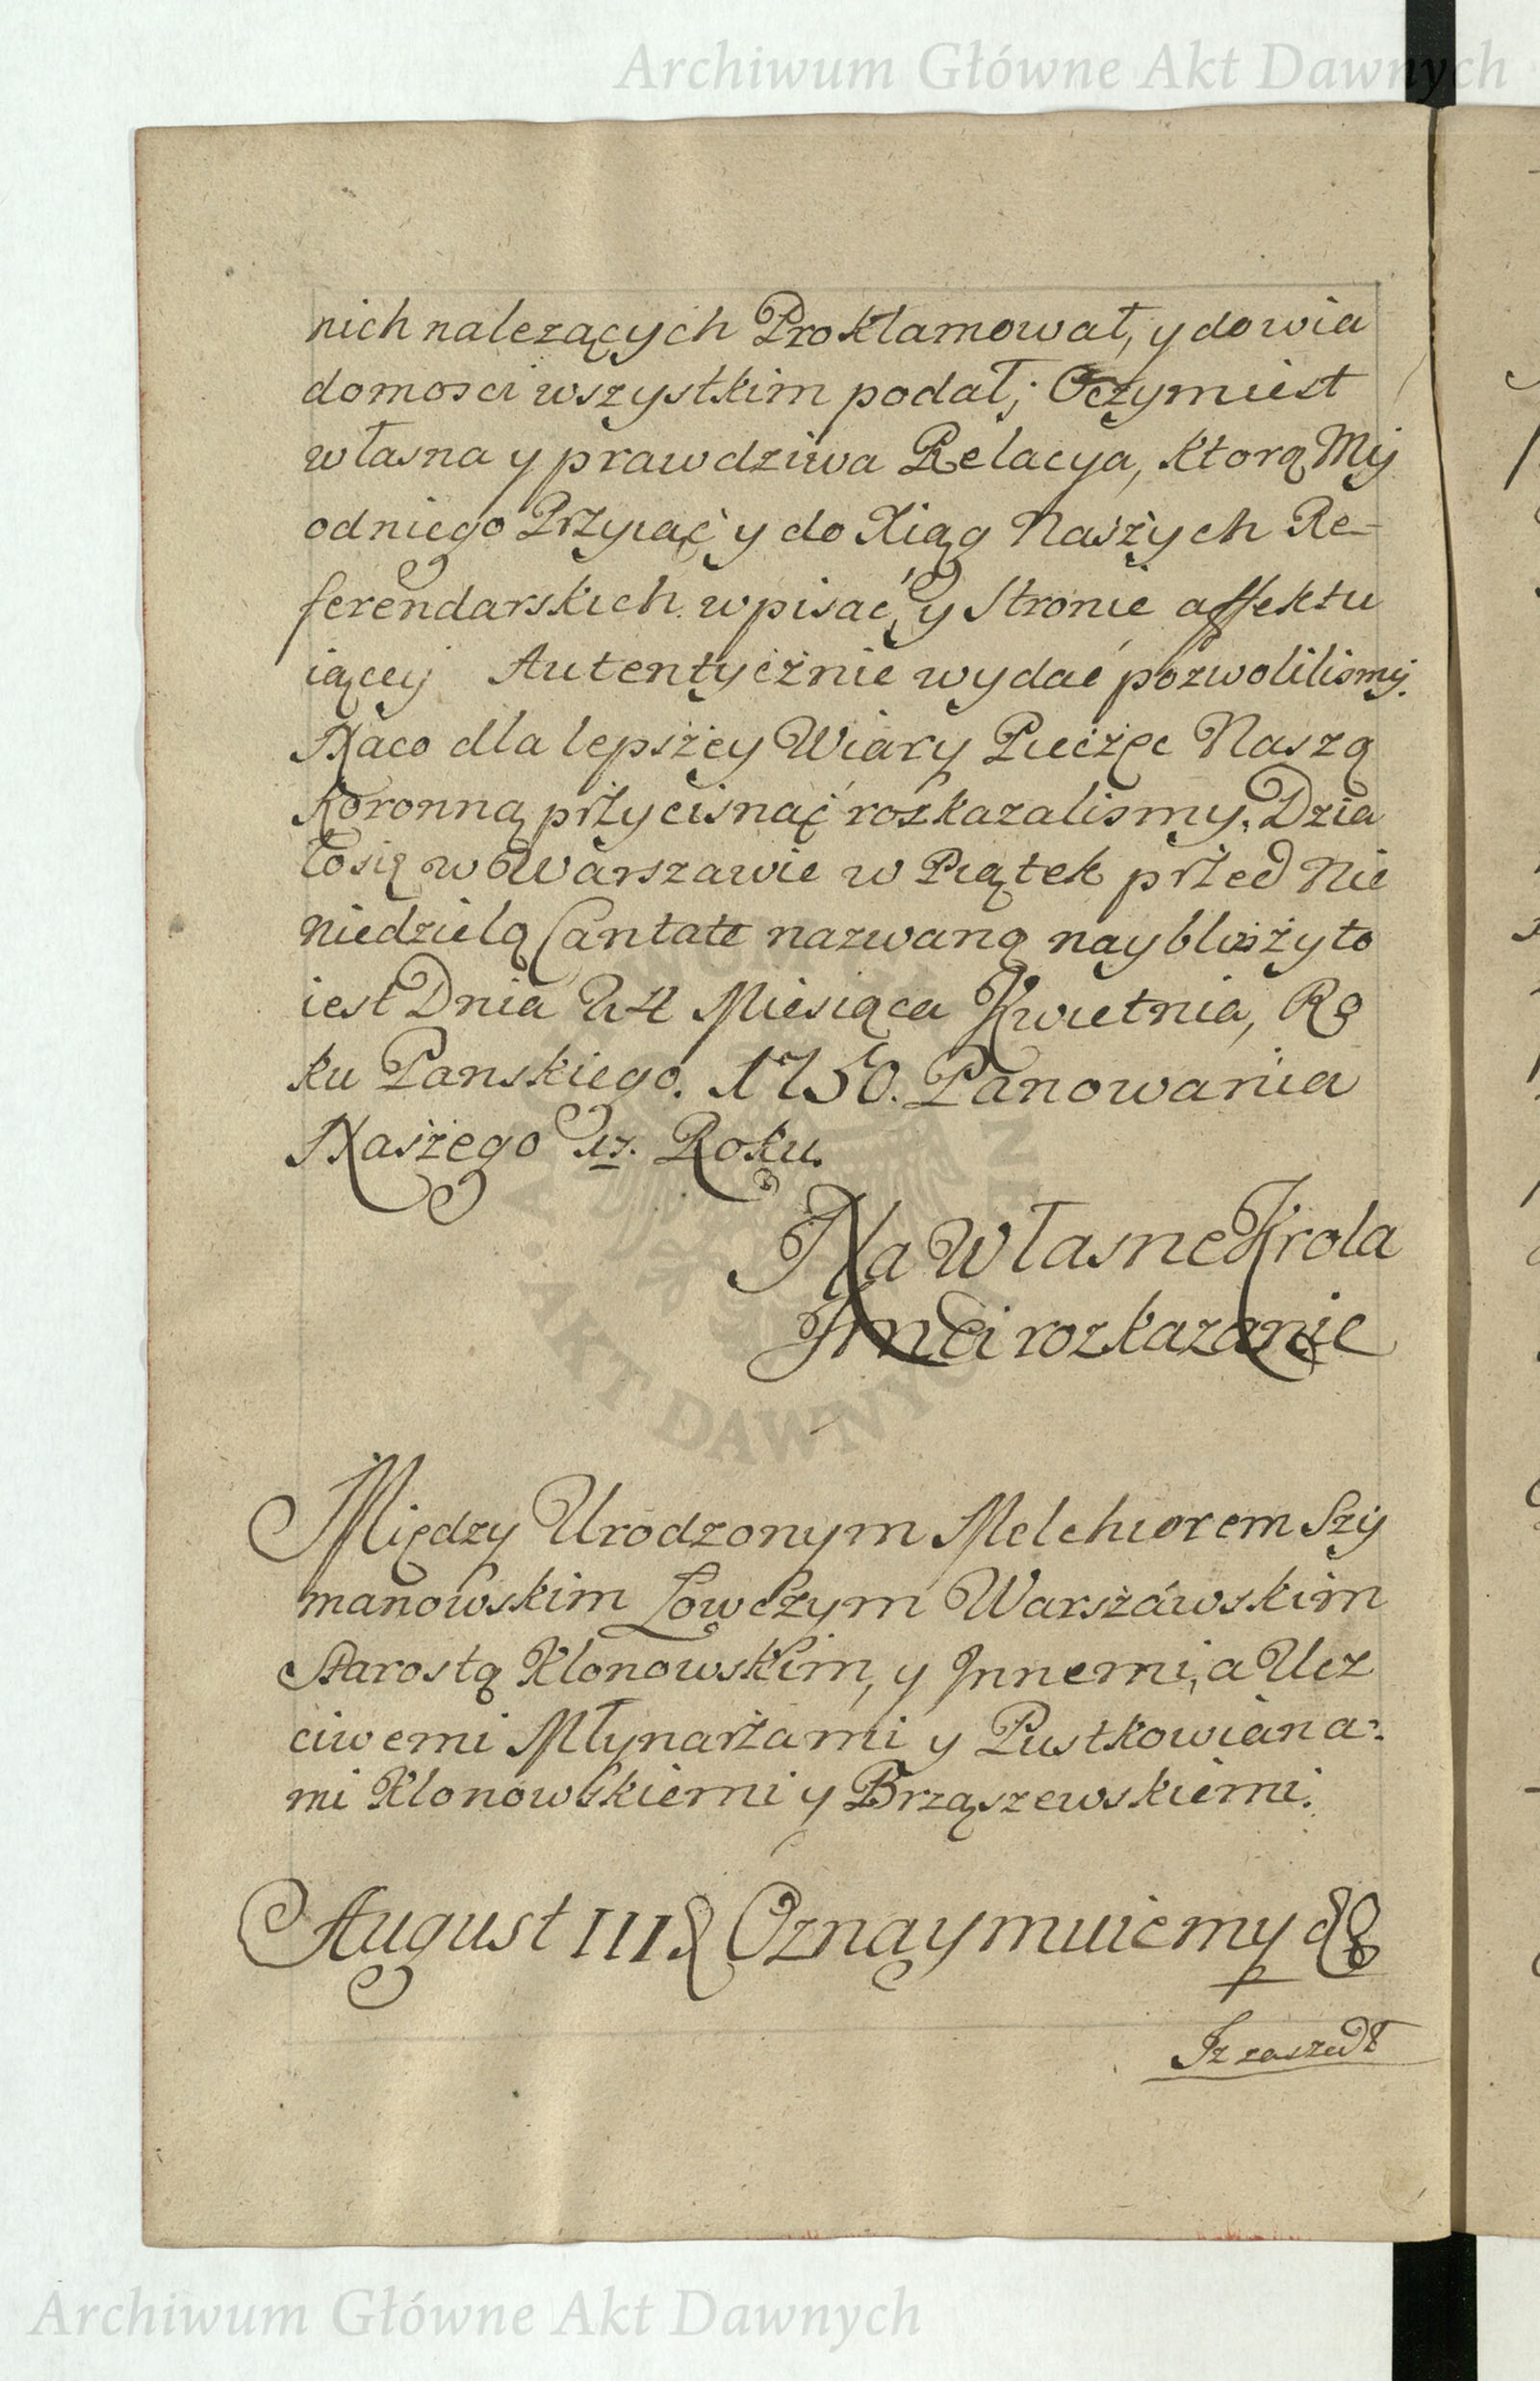 Archiwum Główne Akt Dawnych
nich nalezących Proklamował, y dowia
domosci wszystkim podał; Oczym iest
własna y prawdziwa Relacya, ktorą My
od niego Przyiąć y do Xiąg Naszych Re-
ferendarskich wpisać, y Stronie affektu
iącey Autentycznie wydać pozwolilismy.
Naco dla lepszey Wiary Pieczęc Naszą
Koronną przycisnąć rozkazalismy. Dzia
łosię w Warszawie w Piątek przed Nie
niedzielą Cantate nazwaną naybliższy to
iest Dnia 24 Miesiąca Kwietnia, Ro
ku Panskiego. 1750. Panowania
Naszego 17. Roku.
Na Własne Krola
Jmci rozkazanie
Między Urodzonym Melchiorem Szy
manowskim Łowczym Warszawskim
Starostą Klonowskim, y Jnnemi, a Ucz
ciwemi Młynarzami y Pustkowiana:
mi Klonowskiemi y Brząszewskiemi.
August III & Oznaymuiemy &
Jz zaszedł
Archiwum Główne Akt Dawnych